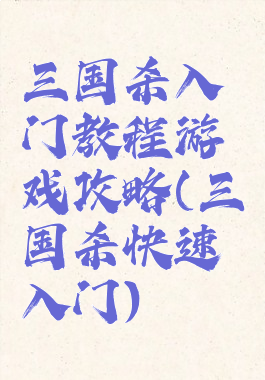 三国杀入
门教程游
戏攻略(三
国杀快速
入门)